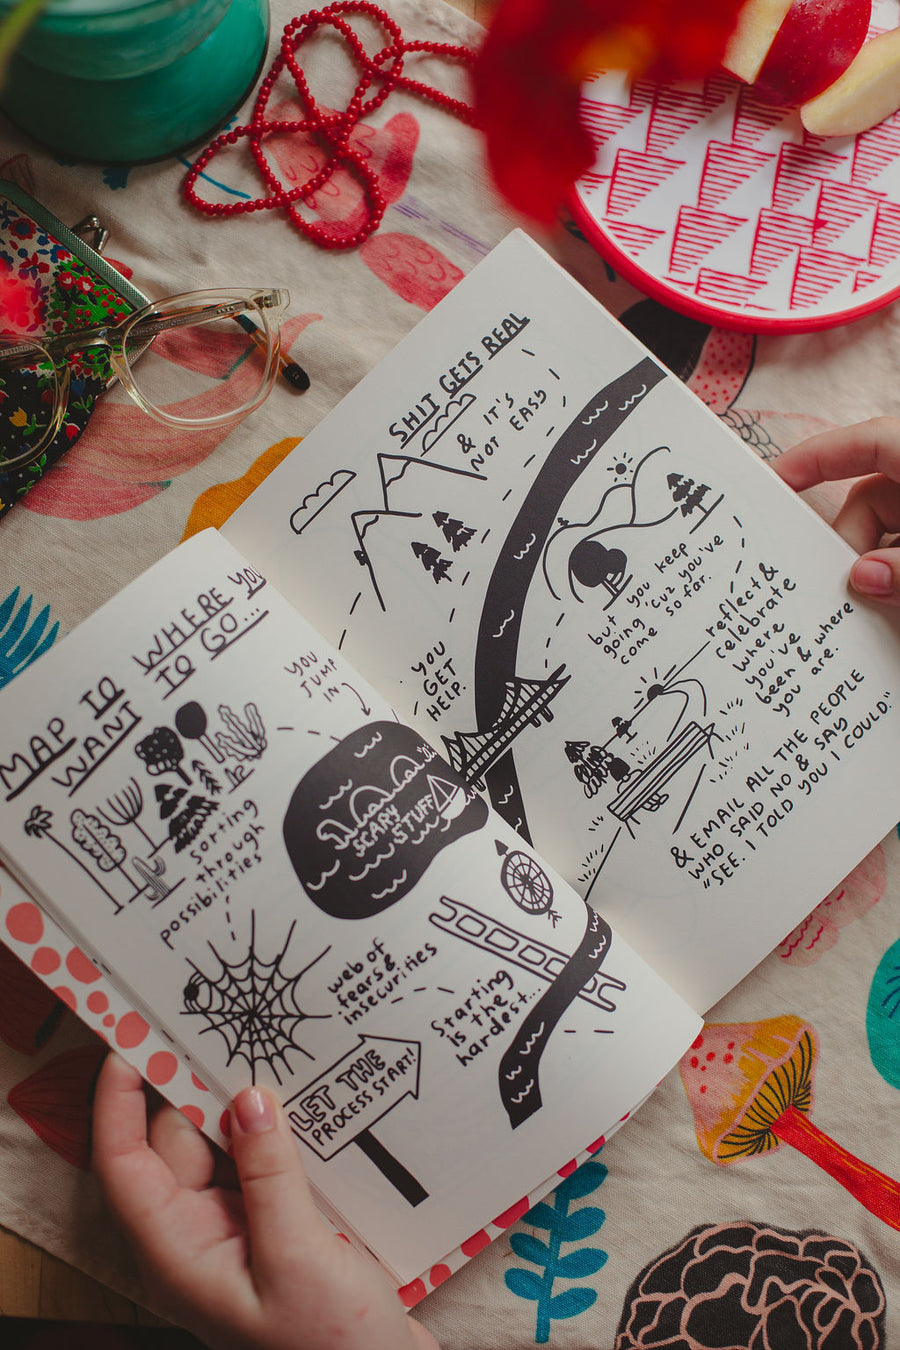 MAP TO WHERE YOU
WANT TO GO...
sorting
through
possibilities
YOU
JUMP
IN
SCARY
STUFF
web of
fears &
insecurities
Starting
is the
hardest...
LET THE
PROCESS START!
SHIT GETS REAL
& IT'S
NOT EASY
YOU
GET
HELP.
but you keep
going 'cuz you've
come so far.
reflect &
celebrate
where
you've
been & where
you are.
& EMAIL ALL THE PEOPLE
WHO SAID NO & SAY
"SEE. I TOLD YOU I COULD."